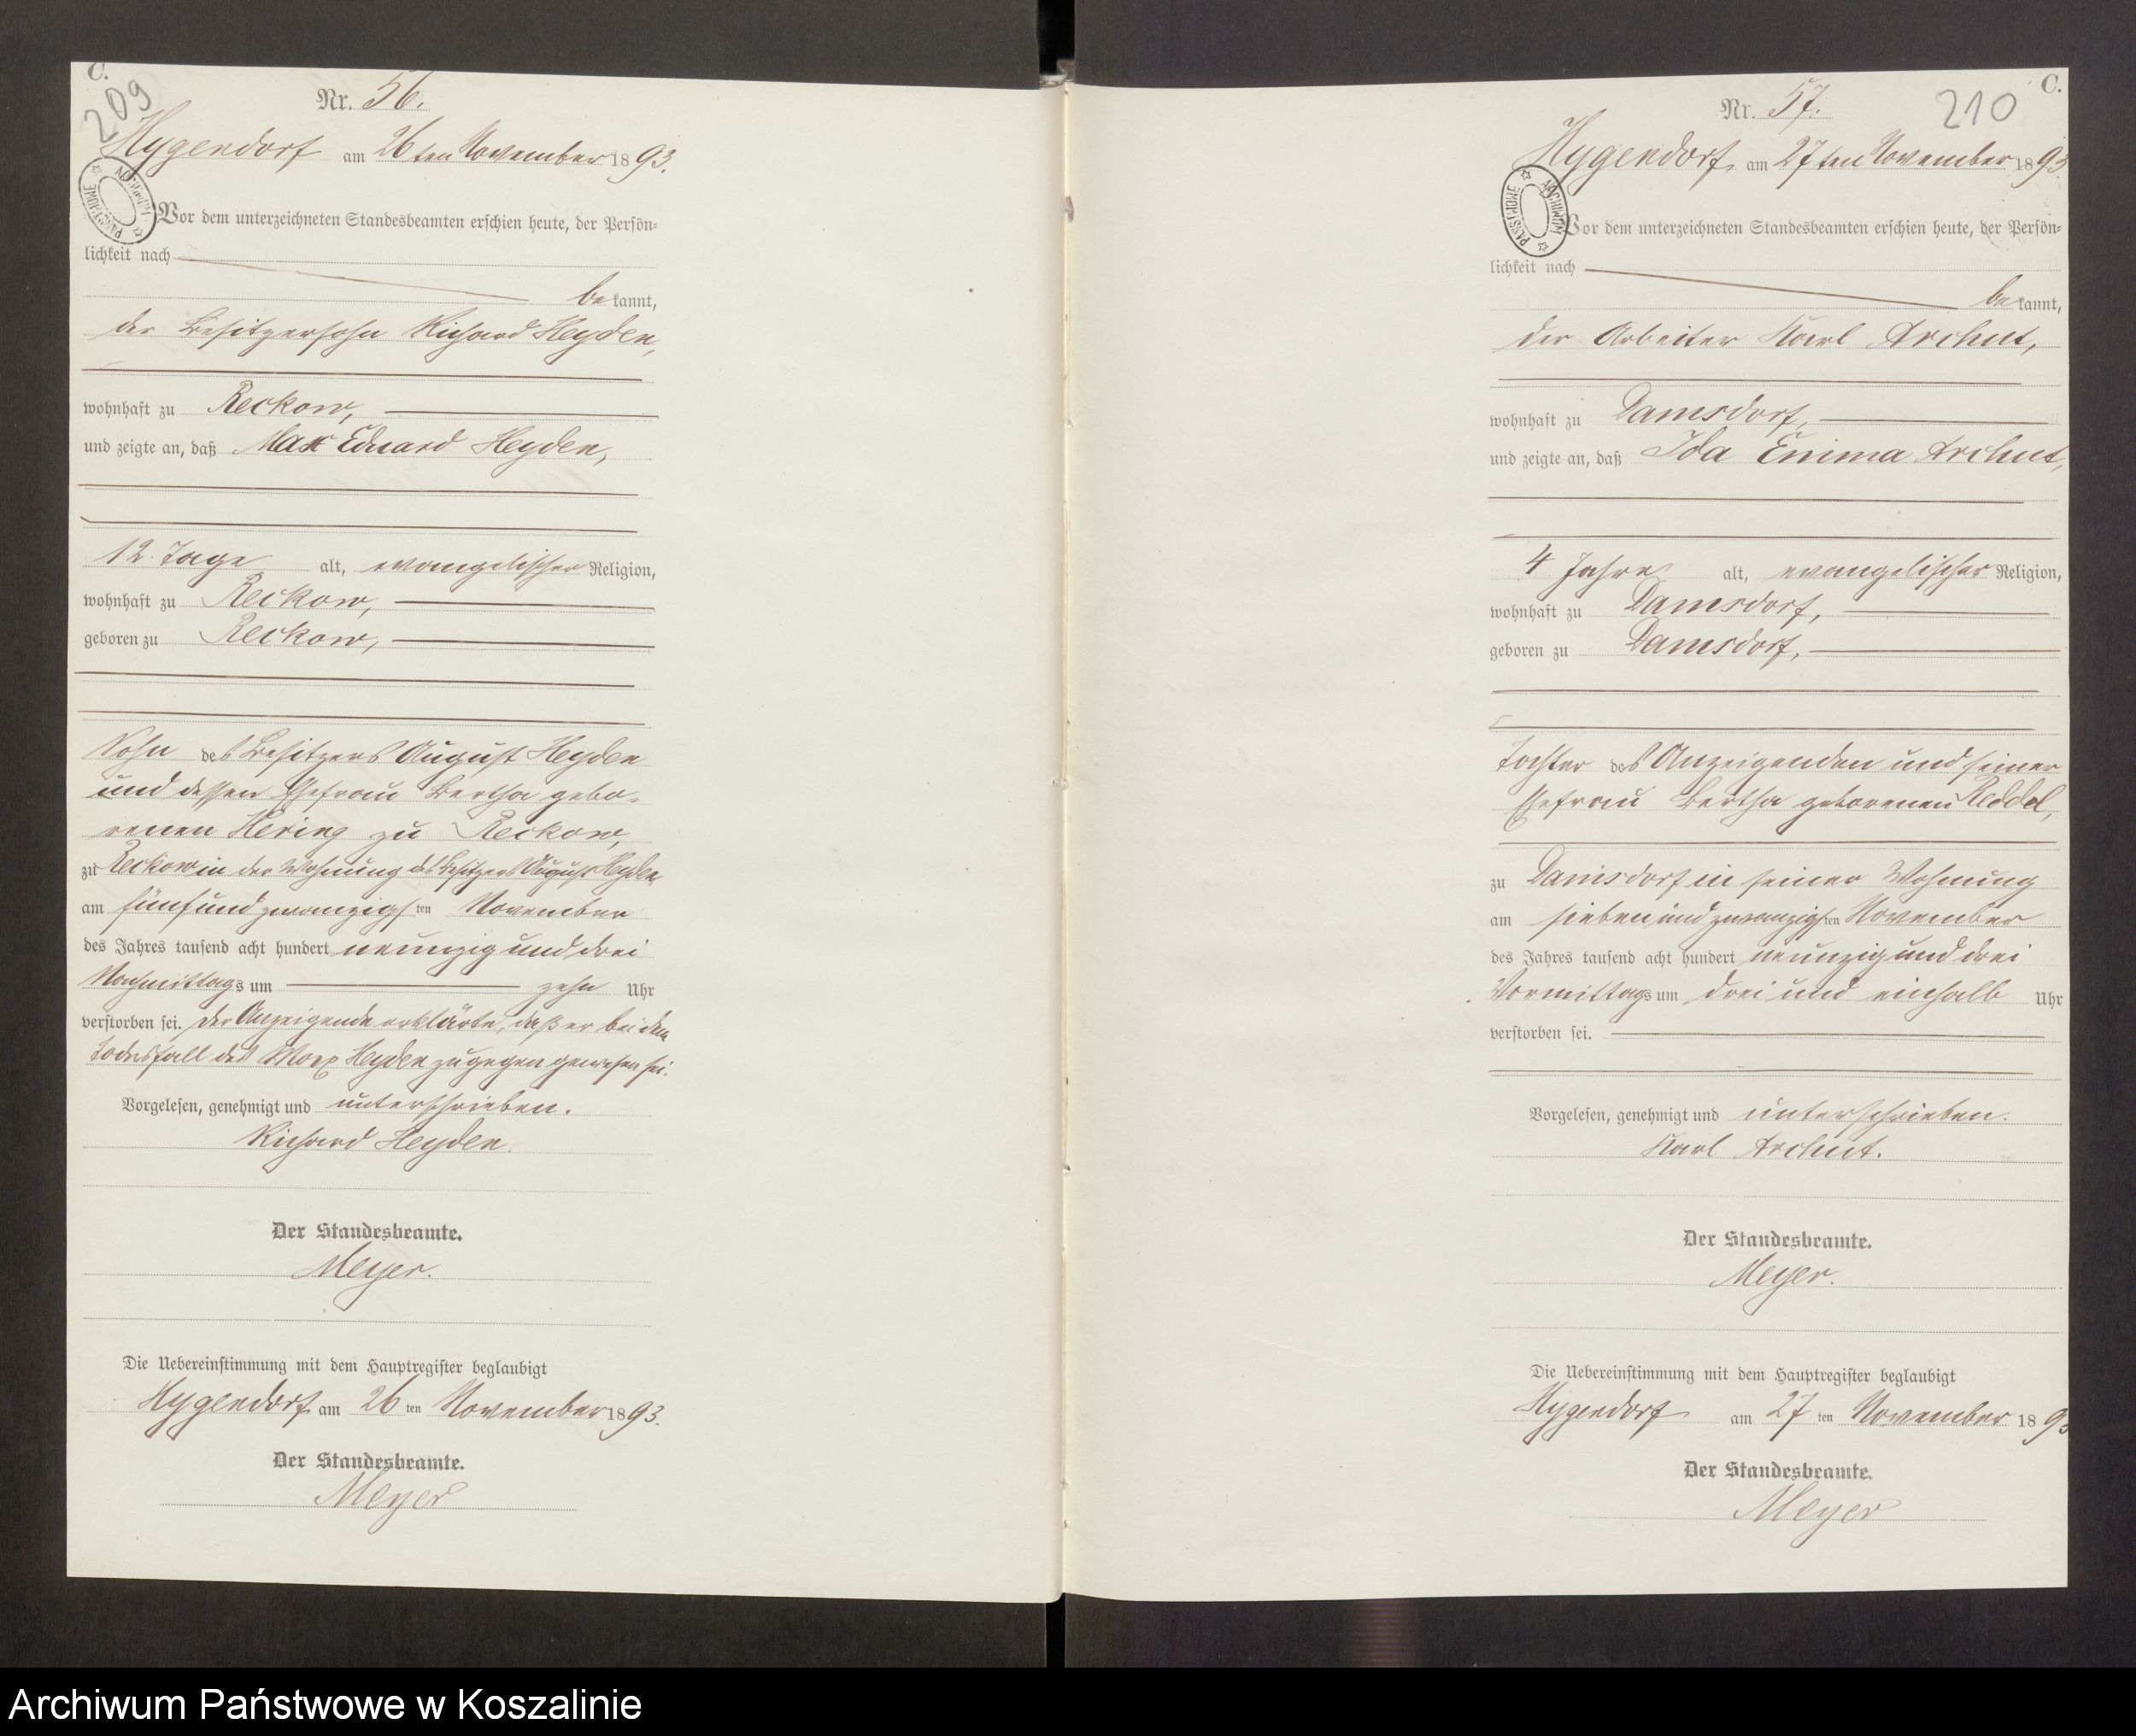 C.
209
Nr. 56.
Hygendorf am 26ten November 1893.
PAŃSTWOWE ARCHIWUM
Vor dem unterzeichneten Standesbeamten erschien heute, der Persön-
lichkeit nach
bekannt,
der Besitzersohn Richard Heyden,
wohnhaft zu Reckow,
und zeigte an, daß Max Eduard Heyden,
12 Tage alt, evangelischer Religion,
wohnhaft zu Reckow,
geboren zu Reckow,
Sohn des Besitzers August Heyden
und dessen Ehefrau Bertha gebo-
renen Hering zu Reckow,
zu Reckow in der Wohnung des Besitzers August Heyden
am fünfundzwanzigsten November
des Jahres tausend acht hundert neunzig und drei
Nachmittags um zehn Uhr
verstorben sei. Der Anzeigende erklärte, daß er bei dem
Todesfall des Max Heyden zugegen gewesen sei.
Vorgelesen, genehmigt und unterschrieben.
Richard Heyden.
Der Standesbeamte.
Meyer.
Die Uebereinstimmung mit dem Hauptregister beglaubigt
Hygendorf am 26ten November 1893.
Der Standesbeamte.
Meyer
C.
210
Nr. 57.
Hygendorf, am 27ten November 1893
PAŃSTWOWE ARCHIWUM
Vor dem unterzeichneten Standesbeamten erschien heute, der Persön-
lichkeit nach
bekannt,
der Arbeiter Karl Archut,
wohnhaft zu Damsdorf,
und zeigte an, daß Ida Emma Archut,
4 Jahre alt, evangelischer Religion,
wohnhaft zu Damsdorf,
geboren zu Damsdorf,
Tochter des Anzeigenden und seiner
Ehefrau Bertha geborenen Reddel,
zu Damsdorf in seiner Wohnung
am siebenundzwanzigsten November
des Jahres tausend acht hundert neunzig und drei
Vormittags um drei und einhalb Uhr
verstorben sei.
Vorgelesen, genehmigt und unterschrieben.
Karl Archut.
Der Standesbeamte.
Meyer.
Die Uebereinstimmung mit dem Hauptregister beglaubigt
Hygendorf am 27ten November 1893
Der Standesbeamte.
Meyer
Archiwum Państwowe w Koszalinie